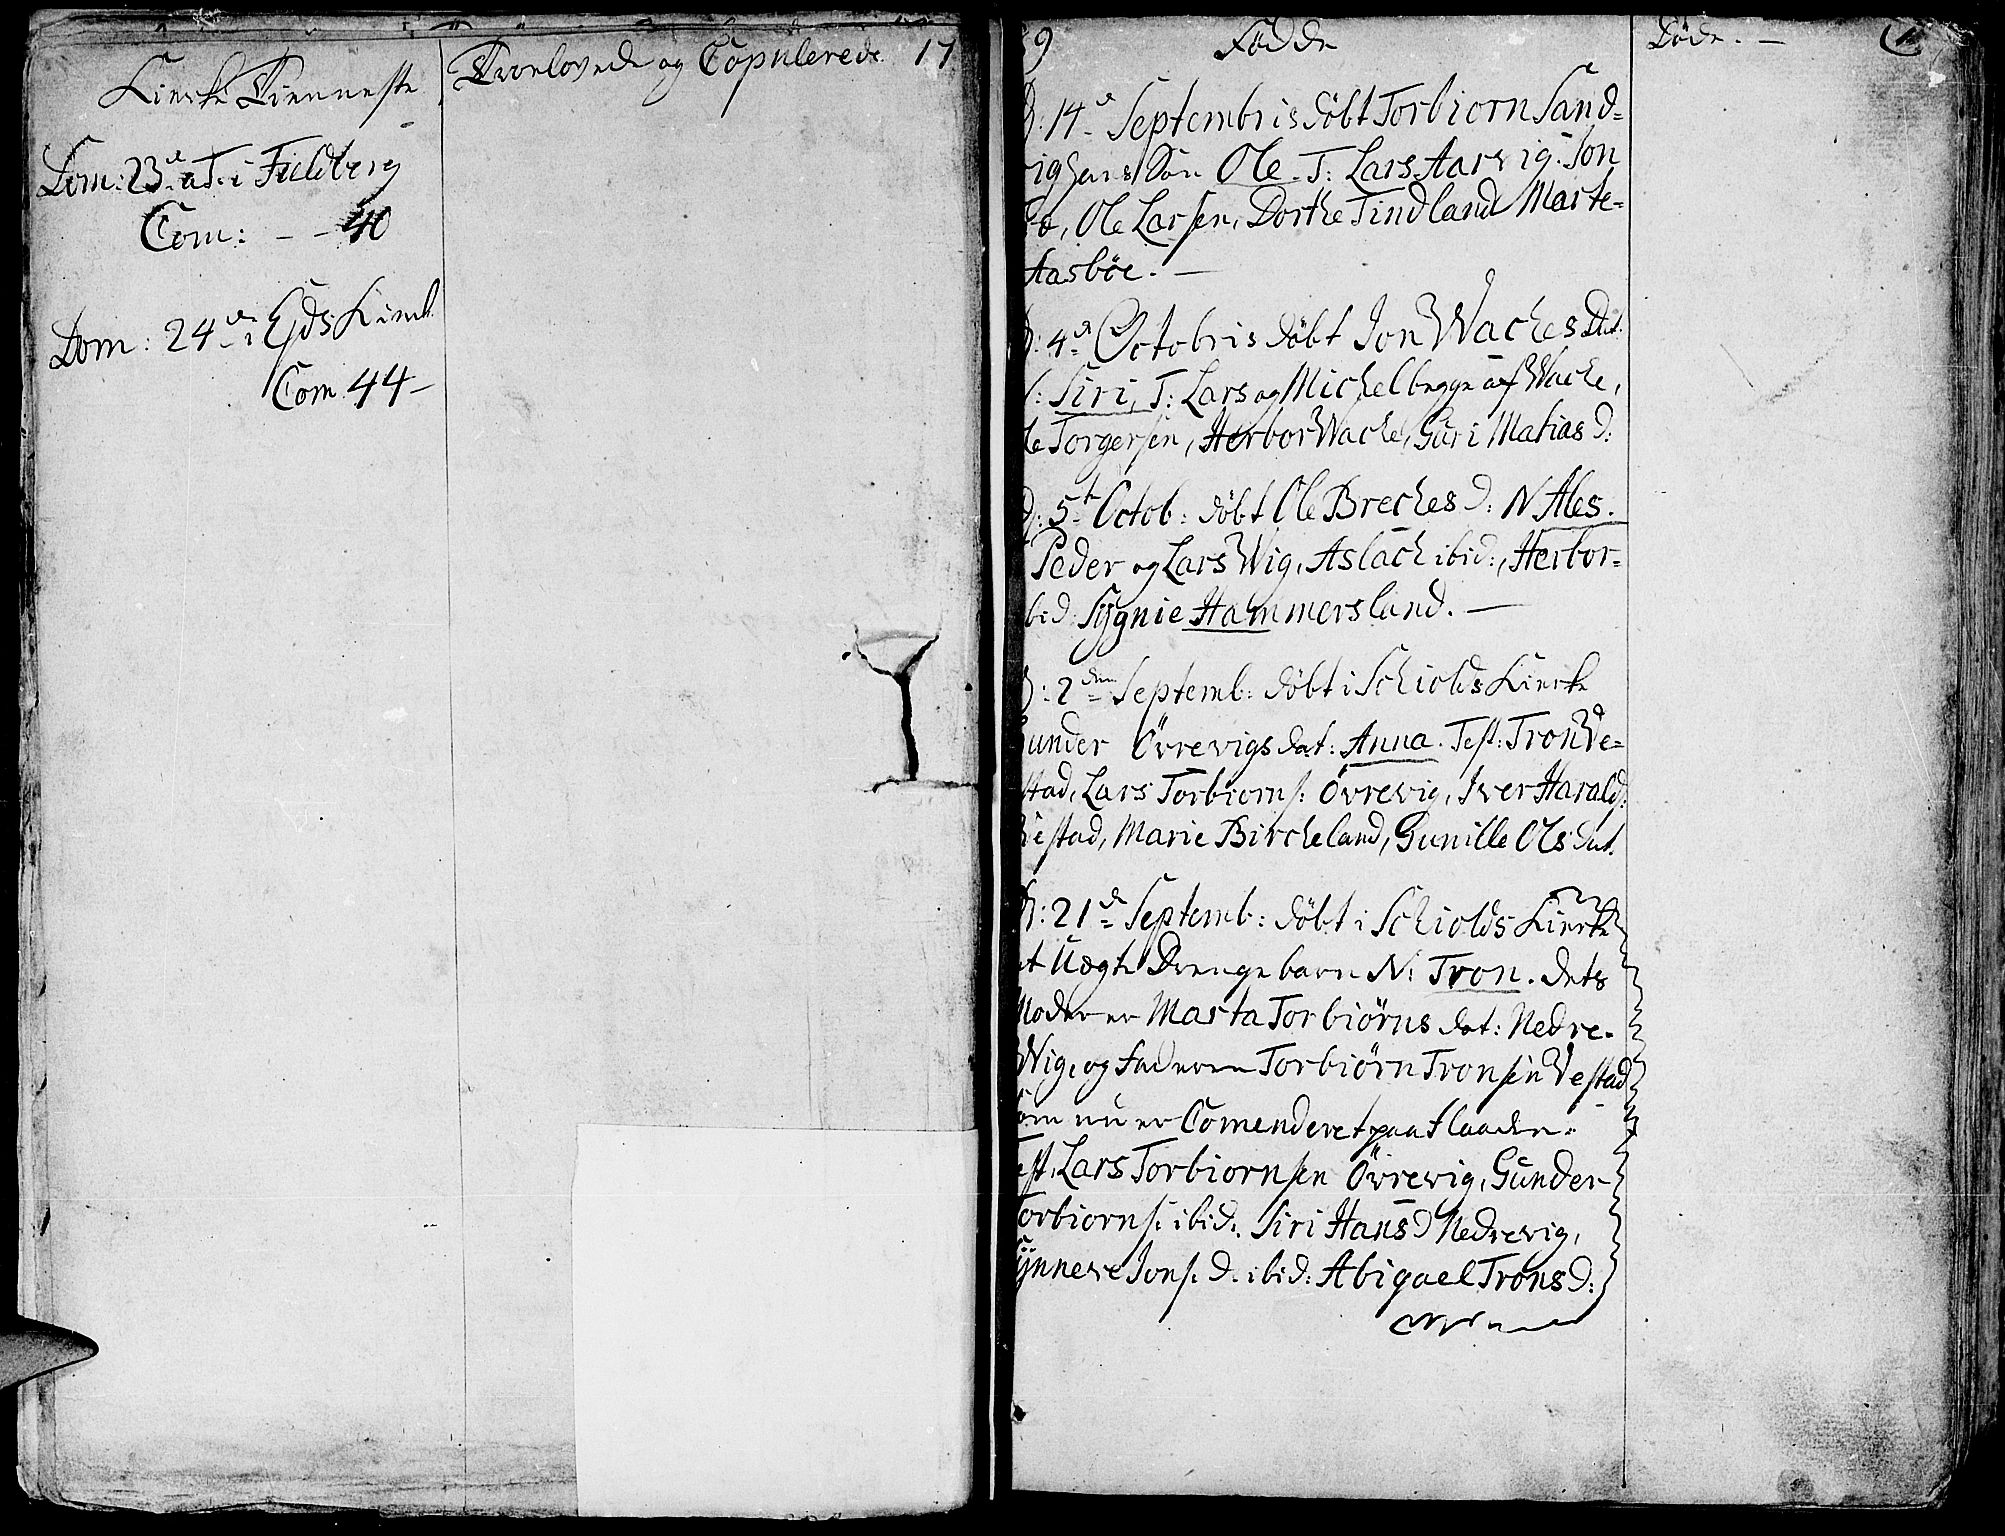 Kircke Tienneste
Trovlovede og Copulerede. 17
Dom: 23de a T. i Fieldberg
Com: - - 40
Dom: 24de i Øds Kirck
Com 44 -
9 Fødde
Døde. -
D: 14de Septembris döbt Torbiorn Sand=
vighans Sön Ole. T: Lars Aarvig. Jon
Ole Larsen, Dorthe Tindland Marte=
Aasböe. -
D: 4de Octobris döbt Jon Waches Dat.
N: Siri, T: Lars og Michel begge af Wache,
Ole Torgersen, Herbor Wache, Guri Matias D:
D: 5t Octob: döbt Ole Breches D: N Ales.
Peder og Lars Wig, Aslach ibid:, Herbor=
ibid: Sygnie Hammersland. -
D: 2den Septemb: döbt i Schiolds Kircke
Gunder Övrevigs dat: Anna. Test: Tron Ve=
stad, Lars Torbiorns: Övrevig, Iver Harald:
Vestad, Marie Bircheland, Gunille Ols dat.
D: 21de Septemb: döbt i Schiolds Kircke
et Uægte Drenge barn N: Tron. dets
Moder er Marta Torbiörns dat: Nedre=
Wig, og Faderen Torbiörn Tronsen Vestad
som nu er Comenderet paa Flaaden.
Test, Lars Torbiornsen Övrevig, Gunder
Torbiorns: ibid: Siri Hans D Nedrevig,
Synneve Jons: D: ibid: Abigael Trons D: